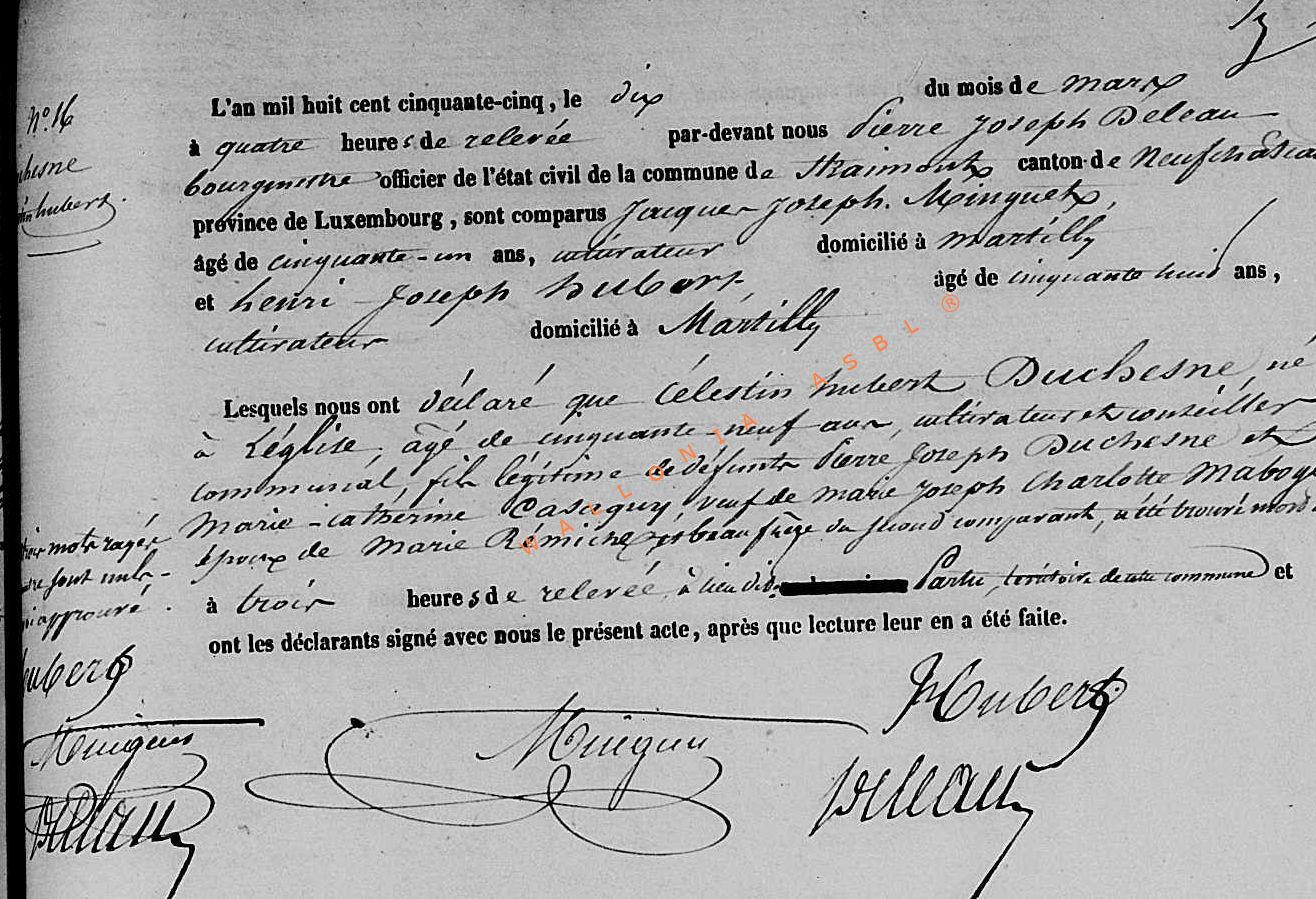 N° 16
Duchesne
Célestin hubert.
L'an mil huit cent cinquante-cinq, le dix du mois de mars
à quatre heures de relevée par-devant nous Pierre Joseph Deleau
bourgmestre officier de l'état civil de la commune de Straimont canton de Neufchâteau
province de Luxembourg, sont comparus Jacques Joseph Minguet,
âgé de cinquante-un ans, cultivateur domicilié à Martilly
et henri Joseph hubert, âgé de cinquante huit ans,
cultivateur domicilié à Martilly
Lesquels nous ont déclaré que Célestin hubert Duchesne, né
à Léglise, âgé de cinquante-neuf ans, cultivateur et conseiller
communal, fils légitime de défunts Pierre Joseph Duchesne et
Marie-Cathérine veuf de marie Joseph Charlotte
époux de Marie beau frère du second comparant, a été trouvé mort
à trois heures de relevée, à lieu dit territoire de cette commune et
ont les déclarants signé avec nous le présent acte, après que lecture leur en a été faite.
mots rayés
sont nuls
approuvé.
hubert
Minguet
Deleau
Minguet
JHubert
Deleau
WALLONIA ASBL ®